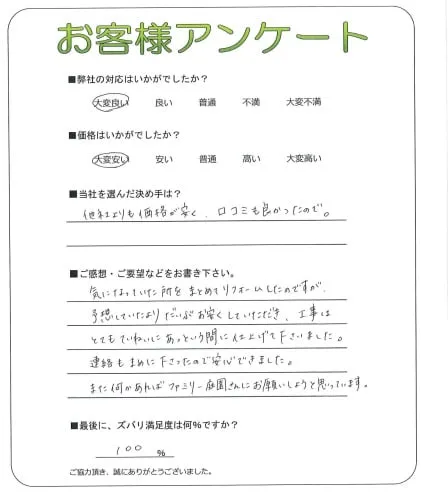 お客様アンケート
■弊社の対応はいかがでしたか？
大変良い 良い 普通 不満 大変不満
■価格はいかがでしたか？
大変安い 安い 普通 高い 大変高い
■当社を選んだ決め手は？
他社よりも価格が安く、口コミも良かったので。
■ご感想・ご要望などをお書き下さい。
気になっていた所をまとめてリフォームしたのですが、
予想していたよりだいぶお安くしていただき、工事は
とてもていねいにあっという間に仕上げて下さいました。
連絡もまめに下さったので安心できました。
また何かあればファミリー庭園さんにお願いしようと思っています。
■最後に、ズバリ満足度は何%ですか？
100 %
ご協力頂き、誠にありがとうございました。